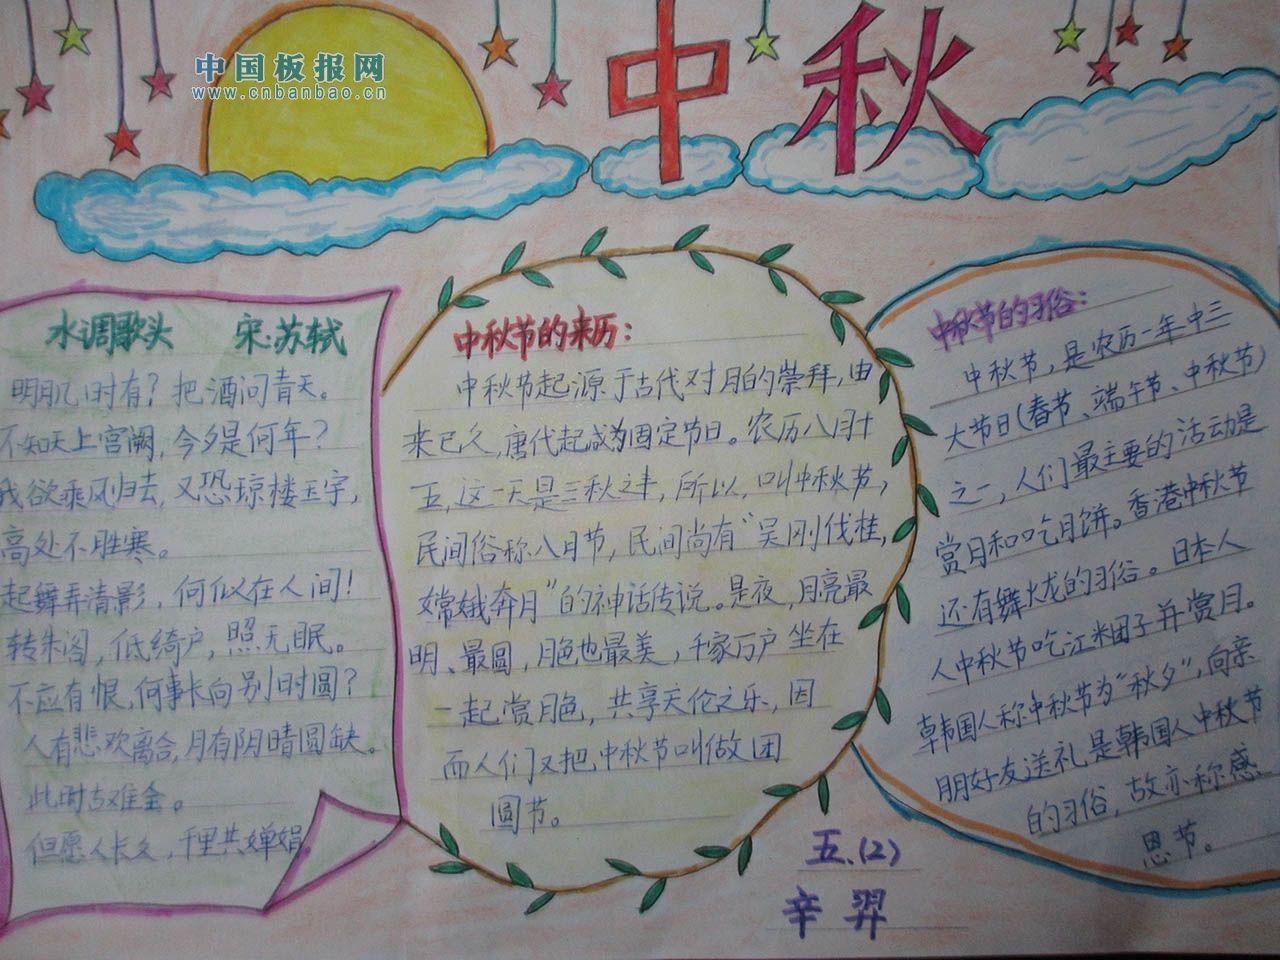 中国板报网
www.cnbanbao.cn
中秋
水调歌头 宋:苏轼
明月几时有？把酒问青天。
不知天上宫阙，今夕是何年？
我欲乘风归去，又恐琼楼玉宇，
高处不胜寒。
起舞弄清影，何似在人间！
转朱阁，低绮户，照无眠。
不应有恨，何事长向别时圆？
人有悲欢离合，月有阴晴圆缺。
此时古难全。
但愿人长久，千里共婵娟。
中秋节的来历：
中秋节起源于古代对月的崇拜，由
来已久，唐代起成为固定节日。农历八月十
五，这一天是三秋之半，所以，叫中秋节，
民间俗称八月节，民间尚有“吴刚伐桂，
嫦娥奔月”的神话传说。是夜，月亮最
明、最圆，月色也最美，千家万户坐在
一起赏月色，共享天伦之乐，因
而人们又把中秋节叫做团
圆节。
中秋节的习俗：
中秋节，是农历一年中三
大节日(春节、端午节、中秋节)
之一，人们最主要的活动是
赏月和吃月饼。香港中秋节
还有舞火龙的习俗。日本人
人中秋节吃江米团子并赏月。
韩国人称中秋节为“秋夕”，向亲
朋好友送礼是韩国人中秋节
的习俗，故亦称感
恩节。
五、(2)
辛羿